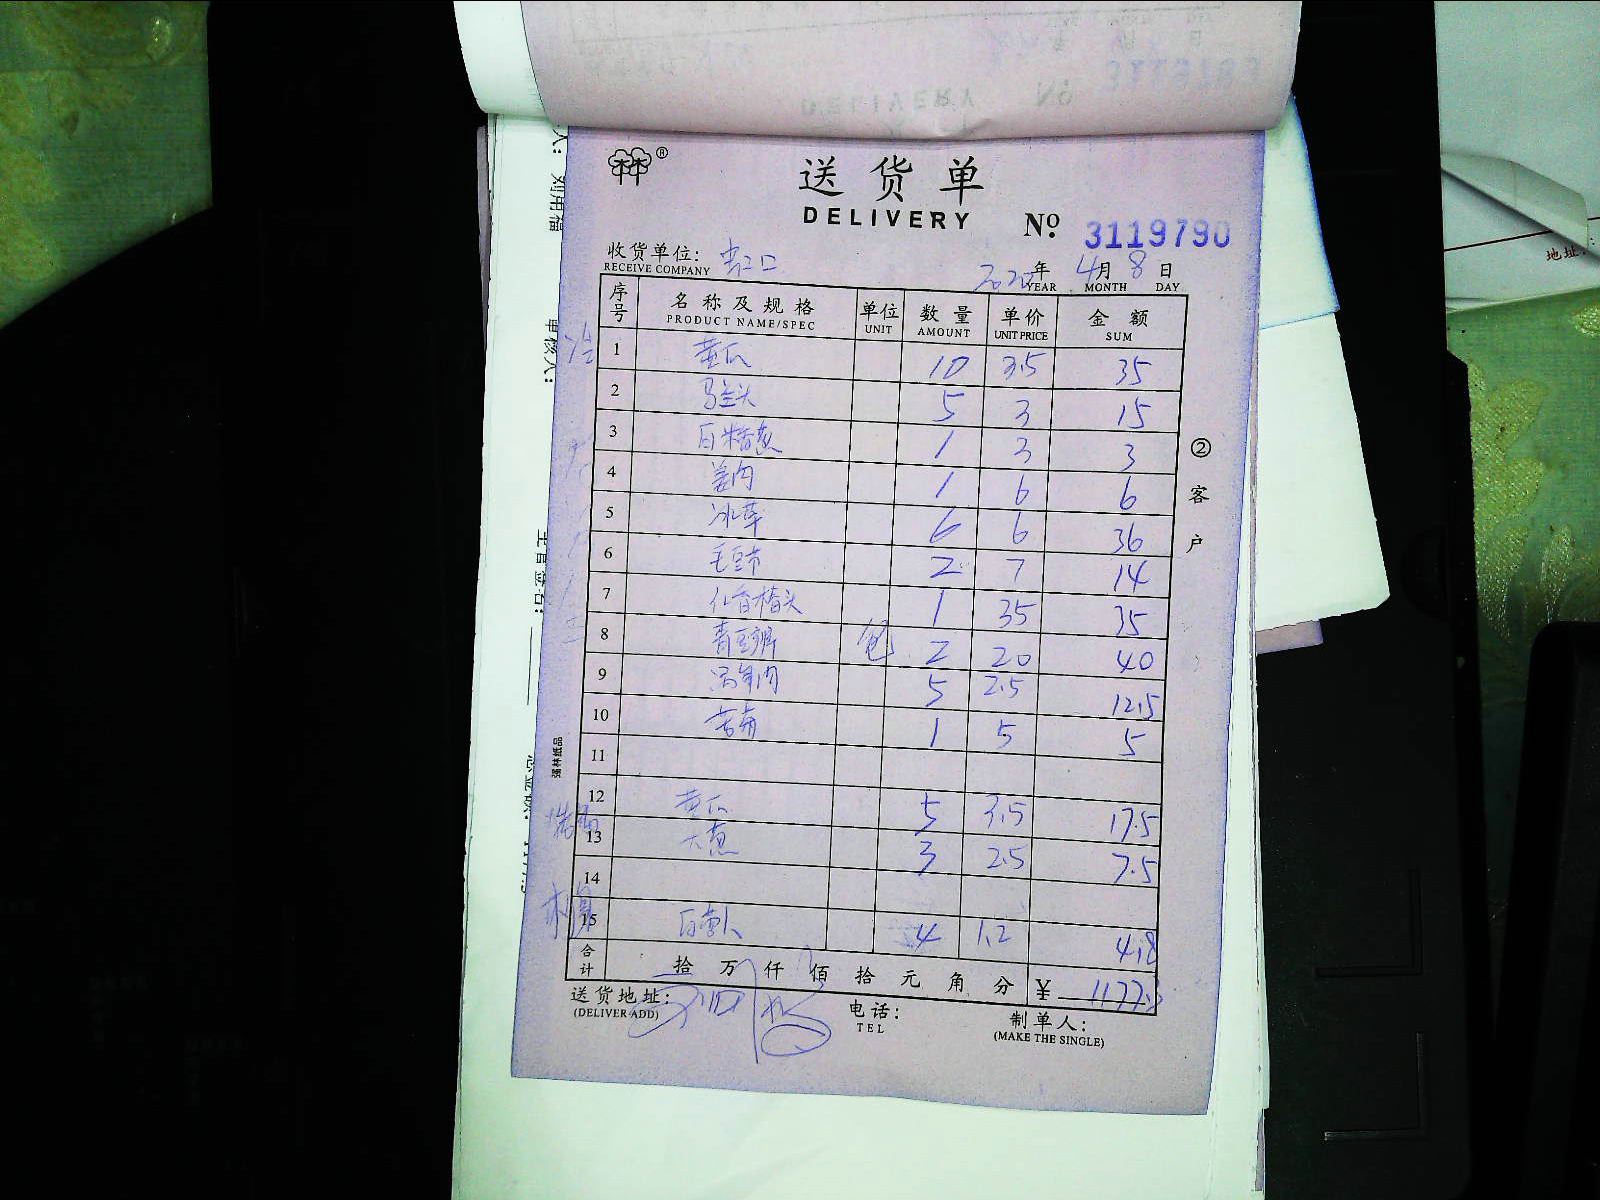 送货单
DELIVERY No. 3119790
收货单位: 虹口
RECEIVE COMPANY
2020年 4月 8日
YEAR MONTH DAY
序号 名称及规格 单位 数量 单价 金额
PRODUCT NAME/SPEC UNIT AMOUNT UNIT PRICE SUM
1 黄瓜 10 3.5 35
2 马兰头 5 3 15
3 1 3 3
4 姜肉 1 6 6
5 冰草 6 6 36
6 毛豆节 2 7 14
7 1 35 35
8 青豆瓣 包 2 20 40
9 5 2.5 12.5
10 1 5 5
11
12 黄瓜 5 3.5 17.5
13 大葱 3 2.5 7.5
14
15 4 1.2 4.8
合计 拾 万 仟 佰 拾 元 角 分 ¥ 1177.3
送货地址: 电话: 制单人:
(DELIVER ADD) TEL (MAKE THE SINGLE)
②客户
强林纸品
审核人:
地址: